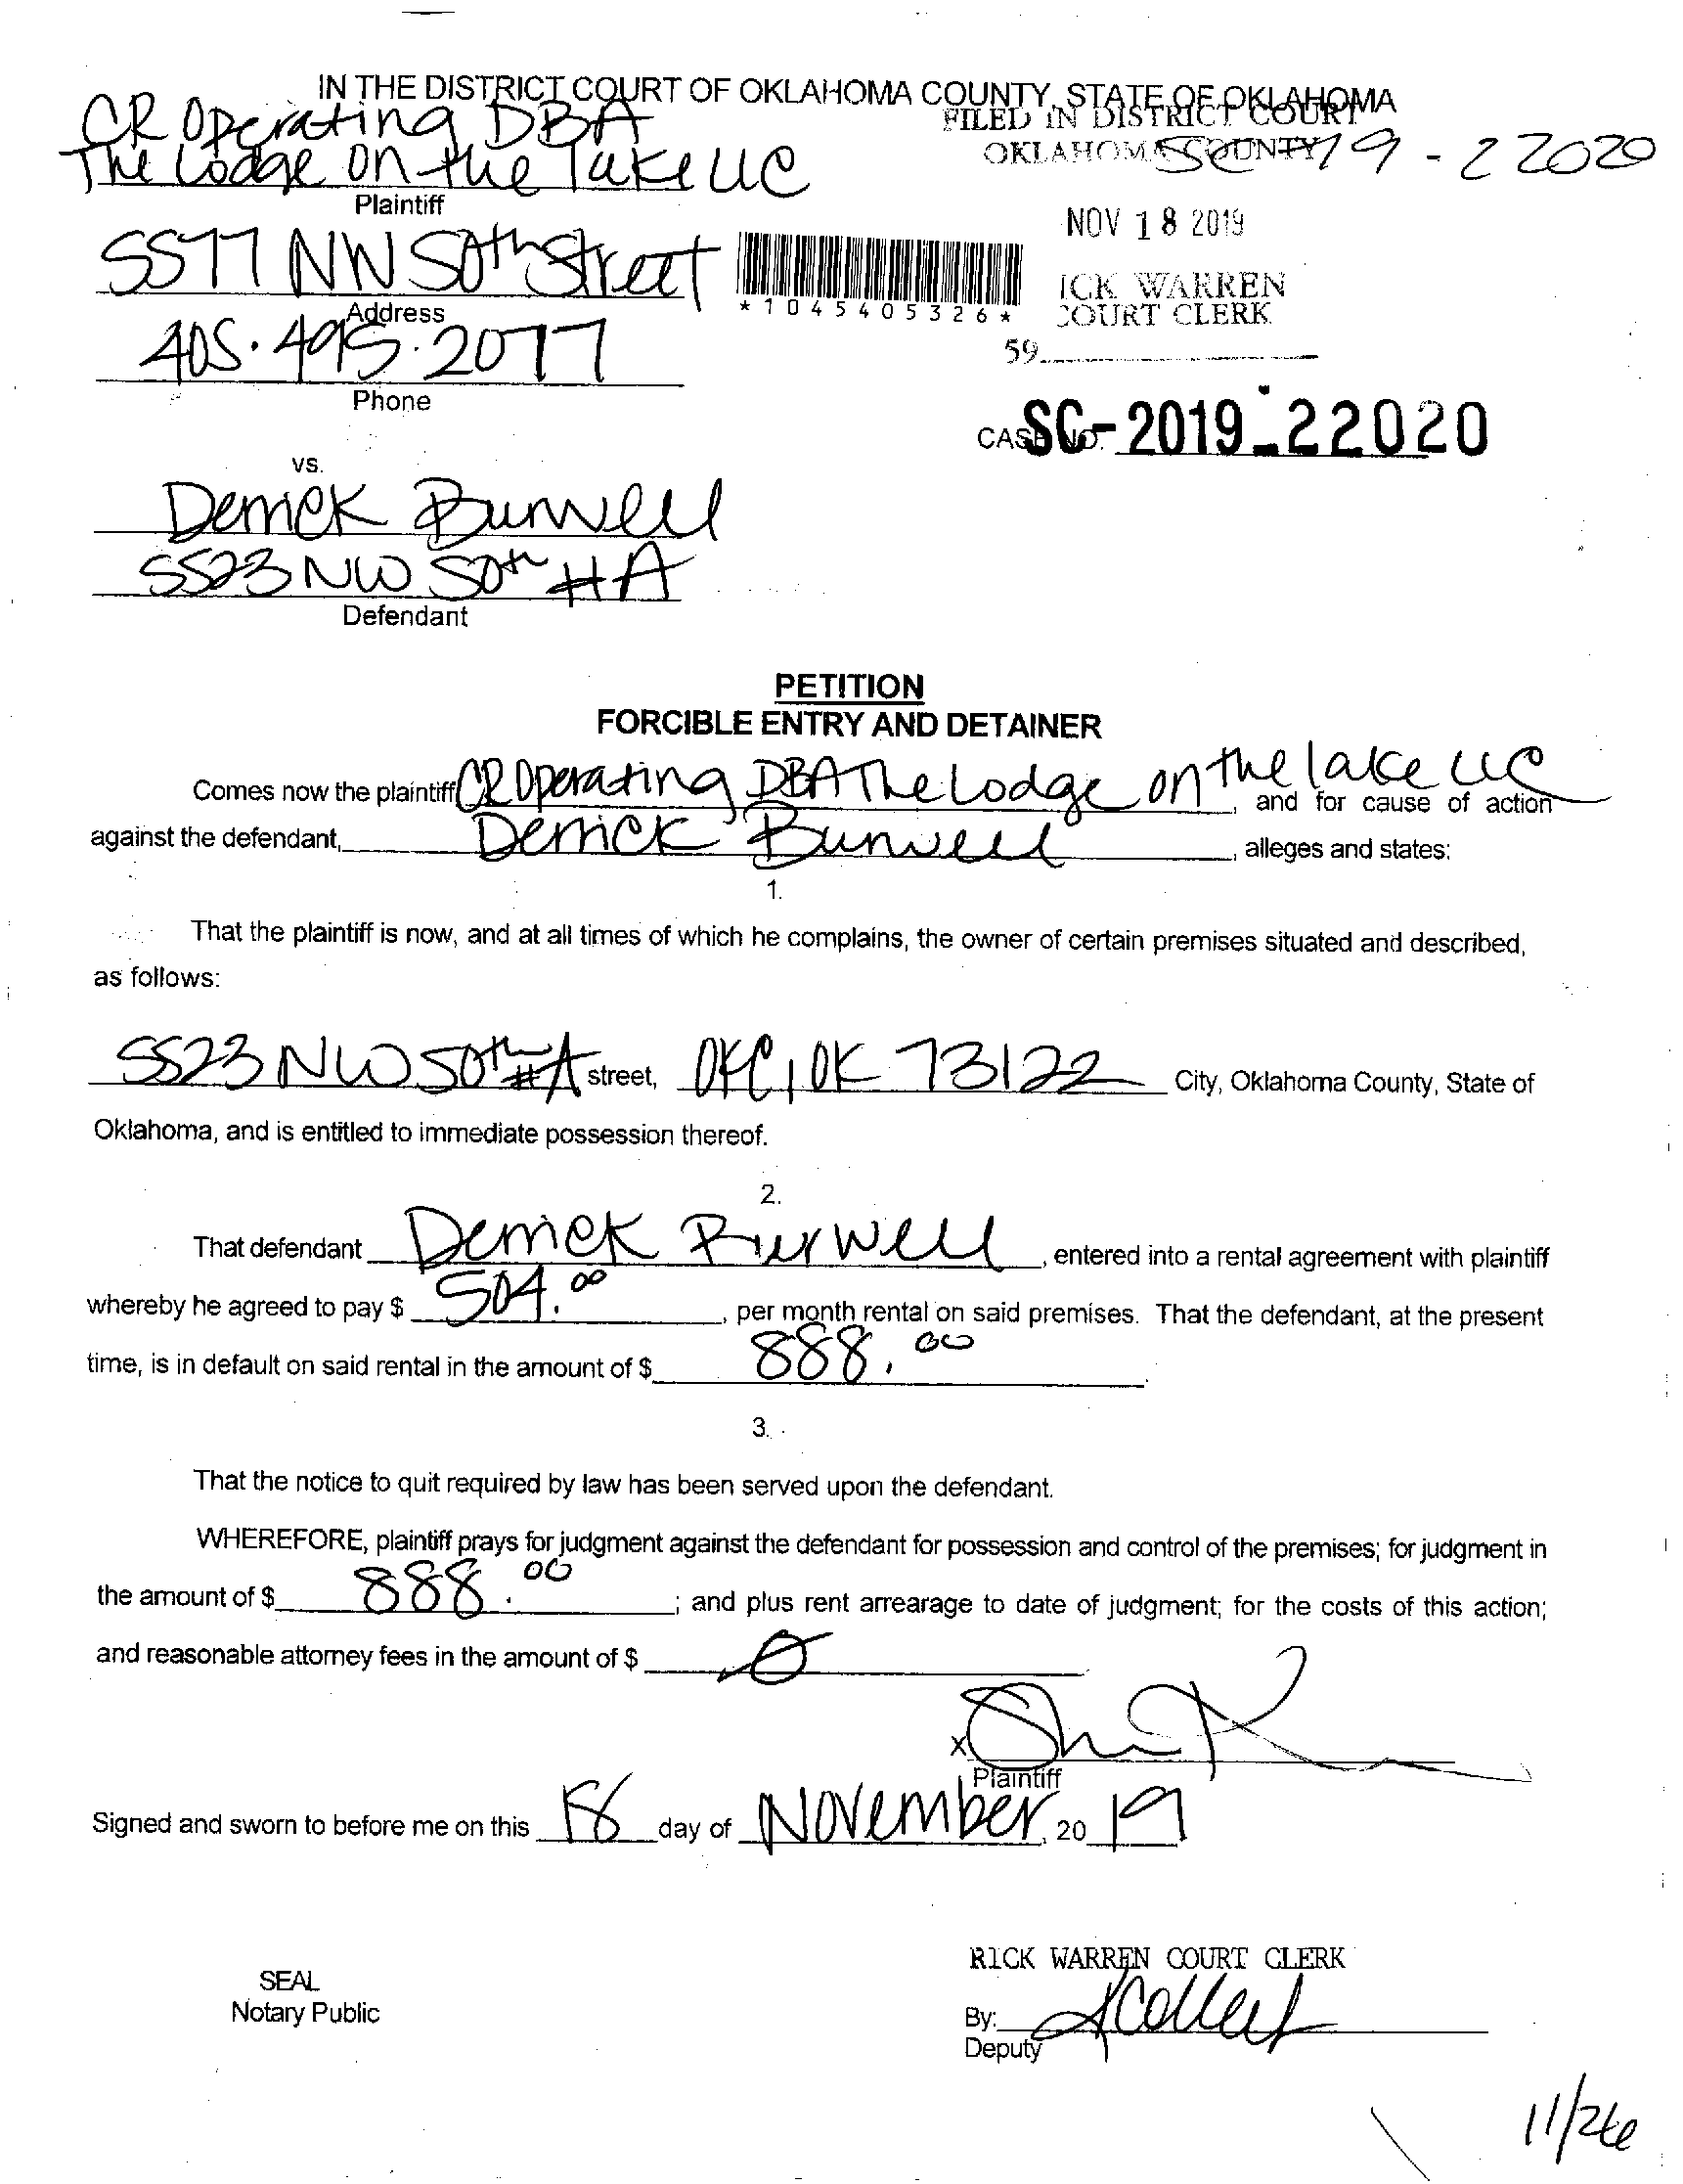 IN THE DISTRICT COURT OF OKLAHOMA COUNTY, STATE OF OKLAHOMA
CR Operating DBA
FILED IN DISTRICT COURT
The Lodge on the Lake LLC
OKLAHOMA COUNTY
SC 19 - 22020
Plaintiff
NOV 18 2019
5577 NW 50th Street
ICK WARREN
Address
*1045405326*
COURT CLERK
405.495.2077
59
Phone
CASE NO. SC-2019-22020
vs.
Derrick Burwell
5523 NW 50th #A
Defendant
PETITION
FORCIBLE ENTRY AND DETAINER
Comes now the plaintiff CR Operating DBA The Lodge on the lake LLC, and for cause of action
against the defendant, Derrick Burwell, alleges and states:
1.
That the plaintiff is now, and at all times of which he complains, the owner of certain premises situated and described,
as follows:
5523 NW 50th #A street, OKC, OK 73122 City, Oklahoma County, State of
Oklahoma, and is entitled to immediate possession thereof.
2.
That defendant Derrick Burwell, entered into a rental agreement with plaintiff
whereby he agreed to pay $ 504.00, per month rental on said premises. That the defendant, at the present
time, is in default on said rental in the amount of $ 888.00.
3.
That the notice to quit required by law has been served upon the defendant.
WHEREFORE, plaintiff prays for judgment against the defendant for possession and control of the premises; for judgment in
the amount of $ 888.00; and plus rent arrearage to date of judgment; for the costs of this action;
and reasonable attorney fees in the amount of $ 0
X
Plaintiff
Signed and sworn to before me on this 18 day of November, 20 19
RICK WARREN COURT CLERK
SEAL
Notary Public
By:
Deputy
11/26